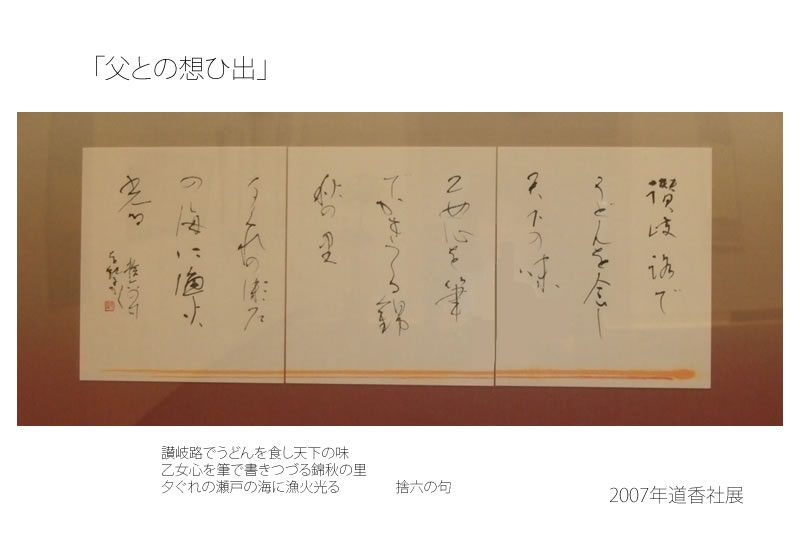 「父との想ひ出」
讃岐路で
うどんを食し
天下の味
乙女心を筆
でかきつづる錦
秋の里
夕ぐれの瀬戸
の海に漁火
光る
捨六の句
讃岐路でうどんを食し天下の味
乙女心を筆で書きつづる錦秋の里
夕ぐれの瀬戸の海に漁火光る　　　　捨六の句
2007年道香社展